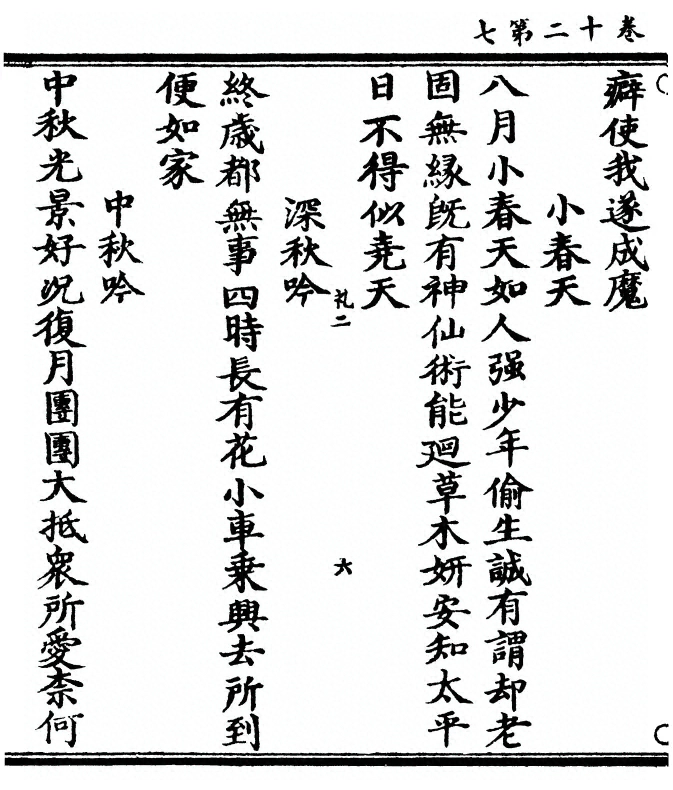 卷十二第七
癖使我遂成魔
小春天
八月小春天如人强少年偷生誠有謂却老
固無緣旣有神仙術能廻草木妍安知太平
日不得似堯天
礼二
六
深秋吟
終歳都無事四時長有花小車乗興去所到
便如家
中秋吟
中秋光景好況復月團團大抵衆所愛柰何